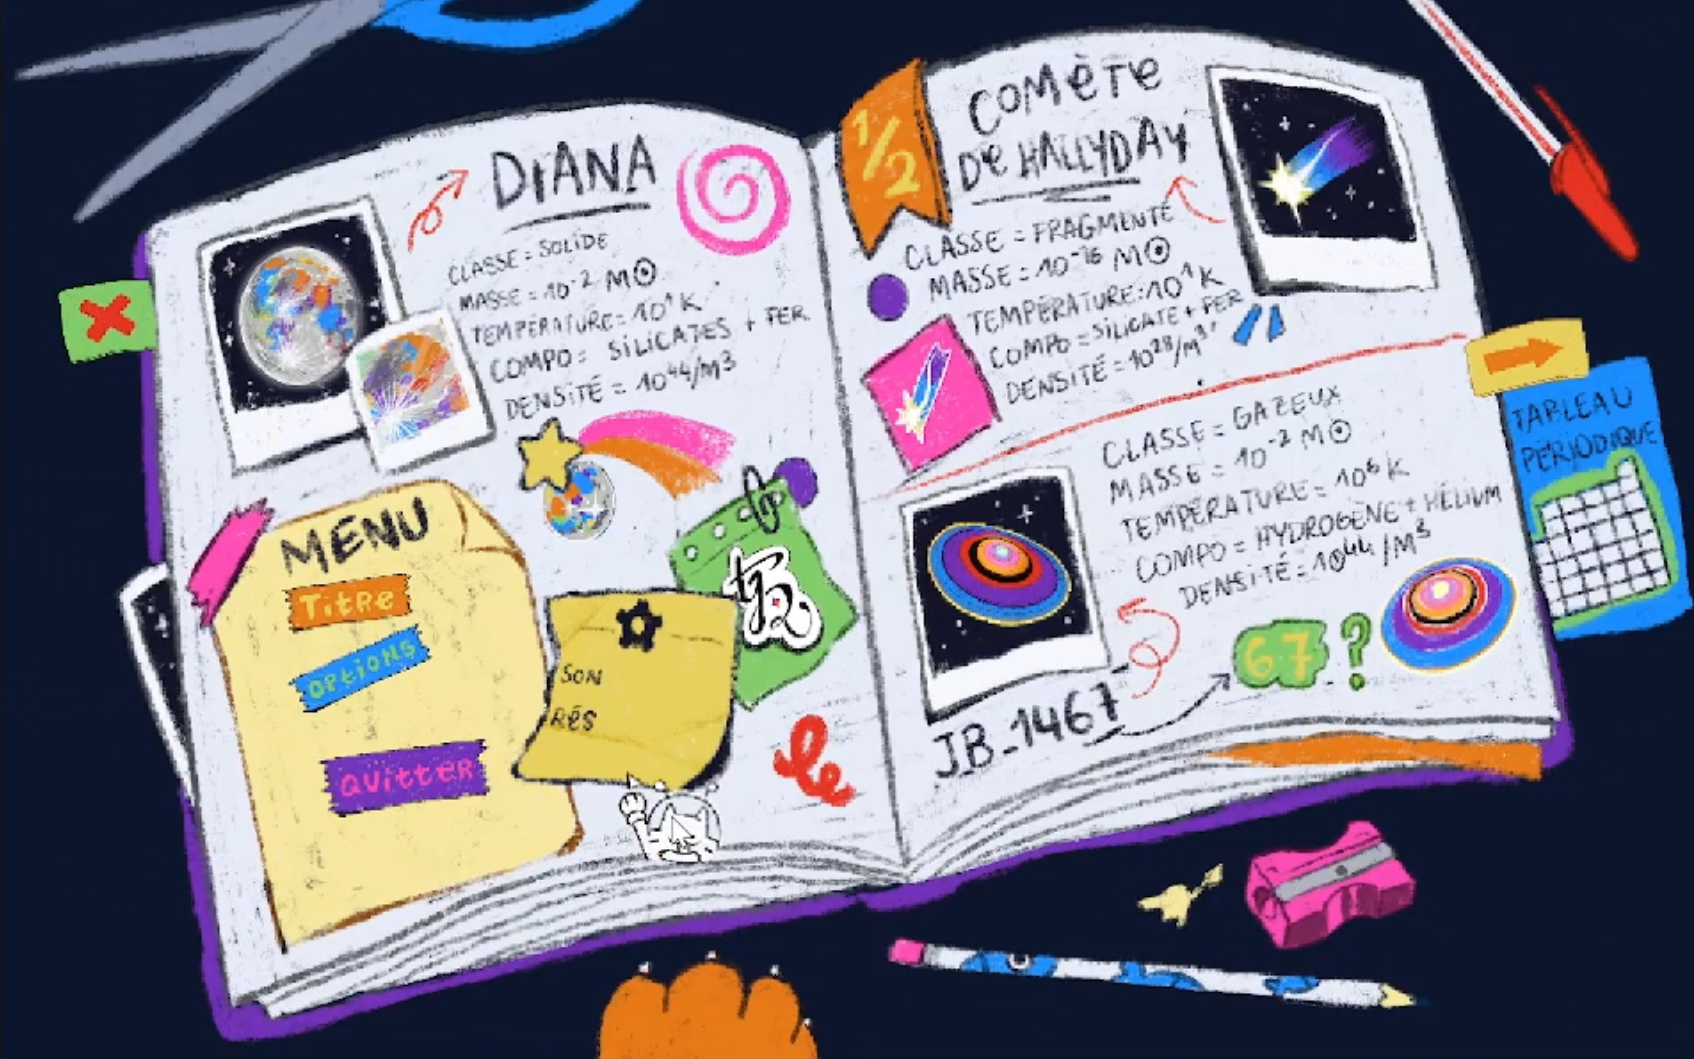 DIANA
CLASSE = SOLIDE
MASSE = 10⁻² M☉
TEMPÉRATURE = 10¹ K
COMPO = SILICATES + FER
DENSITÉ = 10⁴⁴/m³
MENU
Titre
Options
Quitter
SON
RÉS
1/2
COMÈTE
De HALLYDAY
CLASSE = FRAGMENTÉ
MASSE = 10⁻¹⁶ M☉
TEMPÉRATURE: 10¹ K
COMPO = SILICATE + FER
DENSITÉ = 10²⁸/m³
CLASSE = GAZEUX
MASSE = 10⁻² M☉
TEMPÉRATURE = 10⁶ K
COMPO = HYDROGÈNE + HÉLIUM
DENSITÉ = 10⁴⁴/M³
67 ?
JB_1467
TABLEAU
PÉRIODIQUE